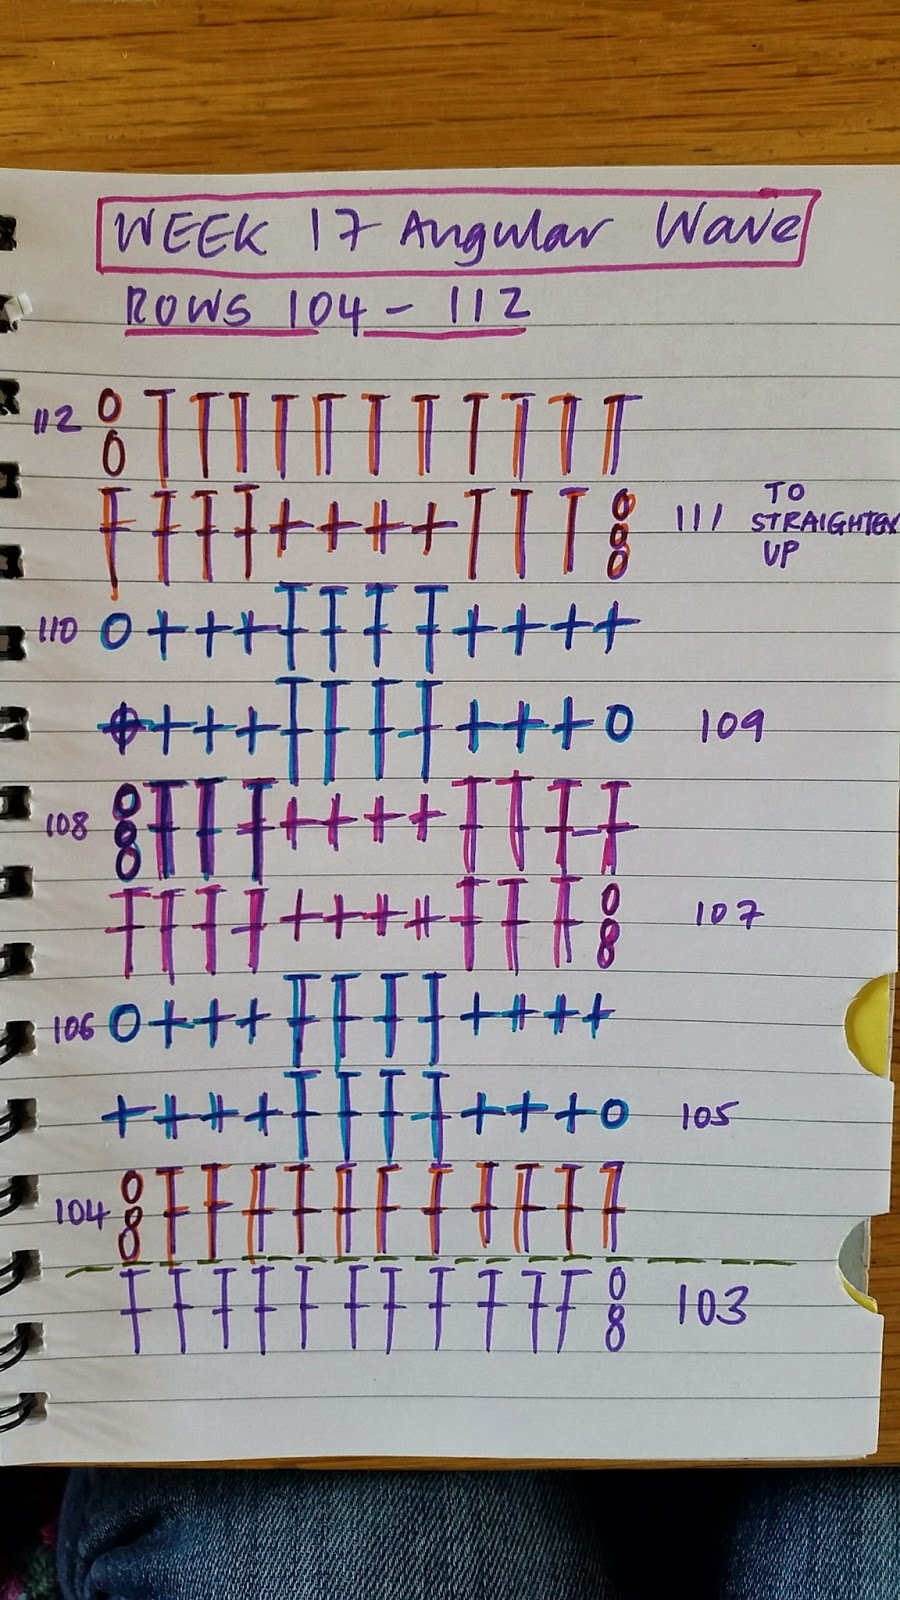 WEEK 17 Angular Wave
ROWS 104 - 112
112
111 TO STRAIGHTEN UP
110
109
108
107
106
105
104
103